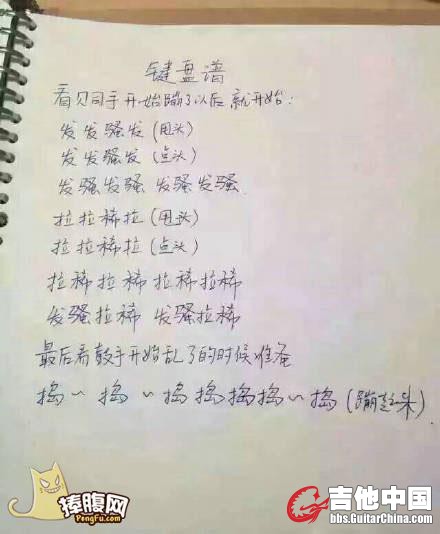 键盘谱
看贝司手开始蹦了以后就开始:
发发骚发(甩头)
发发骚发(点头)
发骚发骚 发骚发骚
拉拉稀拉(甩头)
拉拉稀拉(点头)
拉稀拉稀 拉稀拉稀
发骚拉稀 发骚拉稀
最后看鼓手开始乱了的时候准备
捣~ 捣~捣捣捣捣~捣(蹦起来)
捧腹网
PengFu.com
吉他中国
bbs.GuitarChina.com